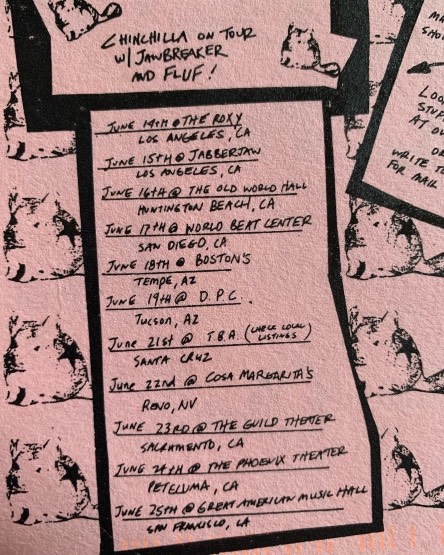 CHINCHILLA ON TOUR
W/ JAWBREAKER
AND FLUF!
JUNE 14TH @ THE ROXY
LOS ANGELES, CA
JUNE 15TH @ JABBERJAW
LOS ANGELES, CA
JUNE 16TH @ THE OLD WORLD HALL
HUNTINGTON BEACH, CA
JUNE 17TH @ WORLD BEAT CENTER
SAN DIEGO, CA
JUNE 18TH @ BOSTON'S
TEMPE, AZ
JUNE 19TH @ D.P.C.
TUCSON, AZ
JUNE 21ST @ T.B.A. (CHECK LOCAL LISTINGS)
SANTA CRUZ
JUNE 22ND @ COSA MARGARITA'S
RENO, NV
JUNE 23RD @ THE GUILD THEATER
SACRAMENTO, CA
JUNE 24TH @ THE PHOENIX THEATER
PETELUMA, CA
JUNE 25TH @ GREAT AMERICAN MUSIC HALL
SAN FRANCISCO, CA
LOO
STUF
AT O
OR
WRITE TO
FOR MAIL